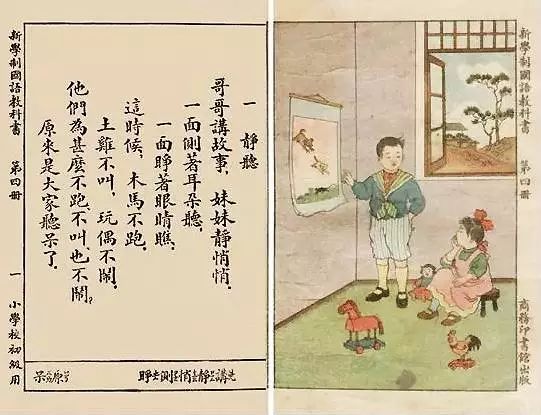 新學制國語教科書 第四册 商務印書館出版
一 靜聽
哥哥講故事,妹妹靜悄悄,
一面側著耳朵聽,
一面睜著眼睛瞧,
這時候,木馬不跑,
土雞不叫,玩偶不鬧,
他們為甚麼不跑,不叫,也不鬧。
原來是大家聽呆了.
講 靜 悄 側 睜 原 呆
新學制國語教科書 第四册 一 小學校初級用